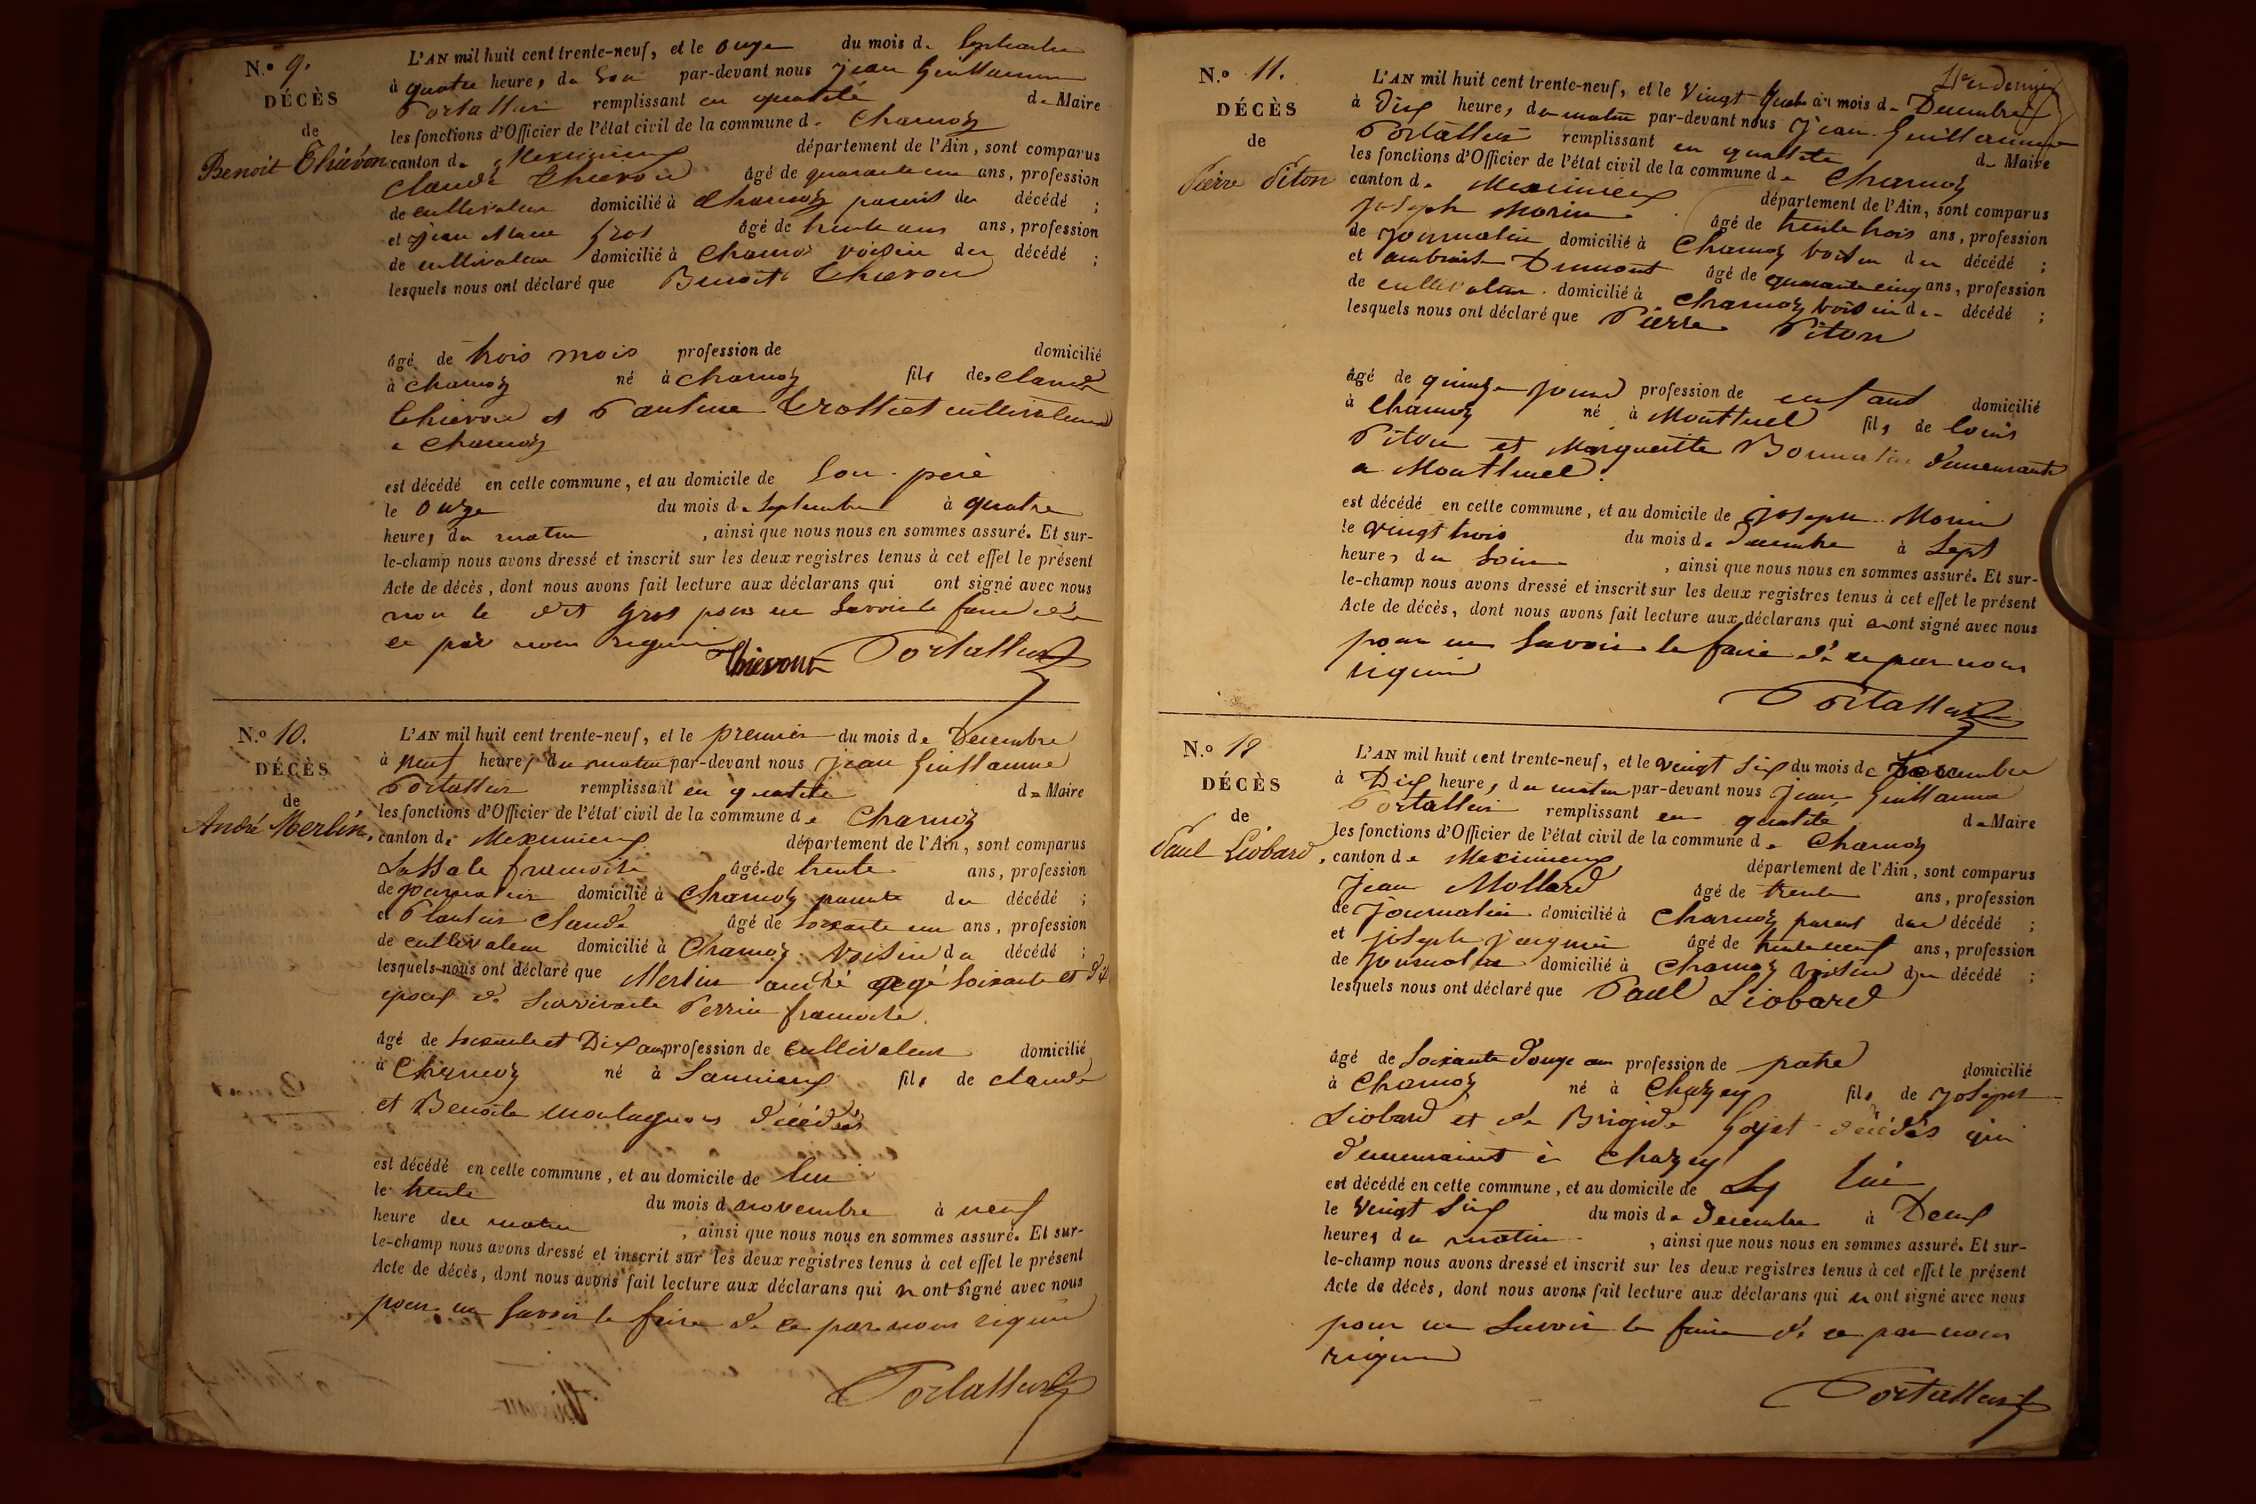 N.º 9.
DÉCÈS
de
Benoit Thiévon
L'AN mil huit cent trente-neuf, et le onze du mois de Septembre
à quatre heures du Soir par-devant nous Jean Guillaume
Portallier remplissant en qualité de Maire
les fonctions d'Officier de l'état civil de la commune de Charnoz
canton de Meximieux département de l'Ain, sont comparus
Claude Thievon âgé de quarante un ans, profession
de cultivateur domicilié à Charnoz parent du décédé ;
et Jean Marie Gros âgé de trente ans, profession
de cultivateur domicilié à Charnoz voisin du décédé ;
lesquels nous ont déclaré que Benoit Thievon
âgé de trois mois profession de domicilié
à Charnoz né à Charnoz fils de Claude
Thievon et Pauline Trolliet cultivateurs
a Charnoz
est décédé en cette commune, et au domicile de Son père
le onze du mois de Septembre à quatre
heures du matin , ainsi que nous nous en sommes assuré. Et sur-
le-champ nous avons dressé et inscrit sur les deux registres tenus à cet effet le présent
Acte de décès, dont nous avons fait lecture aux déclarans qui ont signé avec nous
non le dit Gros pour ne Savoir le faire de
ce par nous requis
Thievont Portallier
N.º 10.
DÉCÈS
de
André Merlin,
L'AN mil huit cent trente-neuf, et le premier du mois de Decembre
à neuf heures du matin par-devant nous Jean Guillaume
Portallier remplissant en qualité de Maire
les fonctions d'Officier de l'état civil de la commune de Charnoz
canton de Meximieux département de l'Ain, sont comparus
Lassale francoise âgé de trente ans, profession
de journalier domicilié à Charnoz parente du décédé ;
et Plantier Claude âgé de soixante un ans, profession
de cultivateur domicilié à Charnoz voisin du décédé ;
lesquels nous ont déclaré que Merlin andré agé soixante et dix
epoux de Survivante Perrin francoise
âgé de soixante et Dix ans profession de cultivateur domicilié
à Charnoz né à fils de claude
et Benoite montagnons décédés
est décédé en cette commune, et au domicile de lui
le trente du mois de novembre à neuf
heure du matin , ainsi que nous nous en sommes assuré. Et sur-
le-champ nous avons dressé et inscrit sur les deux registres tenus à cet effet le présent
Acte de décès, dont nous avons fait lecture aux déclarans qui n ont signé avec nous
pour ne Savoir le faire de ce par nous requis
Portallier
N.º 11.
DÉCÈS
de
Pierre Piton
11e et dernier
L'AN mil huit cent trente-neuf, et le Vingt quatre du mois de Decembre
à Dix heures du matin par-devant nous Jean Guillaume
Portallier remplissant en qualité de Maire
les fonctions d'Officier de l'état civil de la commune de Charnoz
canton de Meximieux département de l'Ain, sont comparus
Joseph Morin âgé de trente trois ans, profession
de Journalier domicilié à Charnoz voisin du décédé ;
et ambroise Dumont âgé de quarante cinq ans, profession
de cultivateur domicilié à Charnoz voisin du décédé ;
lesquels nous ont déclaré que Pierre Piton
âgé de quinze jours profession de enfant domicilié
à Charnoz né à Montluel fils de louis
Piton et Marguerite demeurants
a Montluel.
est décédé en cette commune, et au domicile de Joseph Morin
le vingt trois du mois de decembre à Sept
heures du Soir , ainsi que nous nous en sommes assuré. Et sur-
le-champ nous avons dressé et inscrit sur les deux registres tenus à cet effet le présent
Acte de décès, dont nous avons fait lecture aux déclarans qui n ont signé avec nous
pour ne Savoir le faire de ce par nous
requis
Portallier
N.º 12
DÉCÈS
de
Paul Liobard.
L'AN mil huit cent trente-neuf, et le vingt Six du mois de Decembre
à Dix heures du matin par-devant nous Jean Guillaume
Portallier remplissant en qualité de Maire
les fonctions d'Officier de l'état civil de la commune de Charnoz
canton de Meximieux département de l'Ain, sont comparus
Jean Mollard âgé de trente ans, profession
de Journalier domicilié à Charnoz parent du décédé ;
et joseph jacquier âgé de trente neuf ans, profession
de journalier domicilié à Charnoz voisin du décédé ;
lesquels nous ont déclaré que Paul Liobard
âgé de Soixante douze ans profession de patre domicilié
à Charnoz né à Chazey fils de Joseph
Liobard et de Brigide Goyet décédés qui
demeuraient à Chazey
est décédé en cette commune, et au domicile de lui
le vingt Six du mois de decembre à Deux
heures du matin , ainsi que nous nous en sommes assuré. Et sur-
le-champ nous avons dressé et inscrit sur les deux registres tenus à cet effet le présent
Acte de décès, dont nous avons fait lecture aux déclarans qui n ont signé avec nous
pour ne Savoir le faire de ce par nous
requis
Portallier